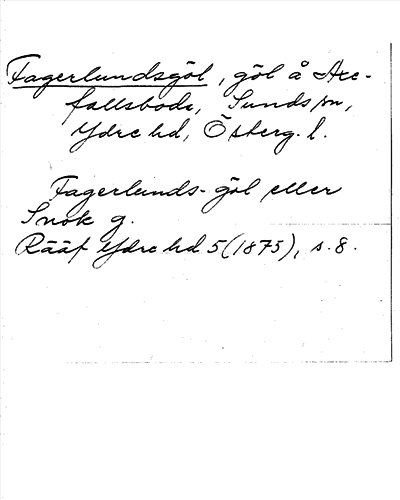 Fagerlundsgöl, göl å Axe-
fallsboda, Sunds sn,
Ydre hd, Österg. l.
Fagerlunds-göl eller
Snok g.
Rääf Ydre hd 5(1875), s. 8.